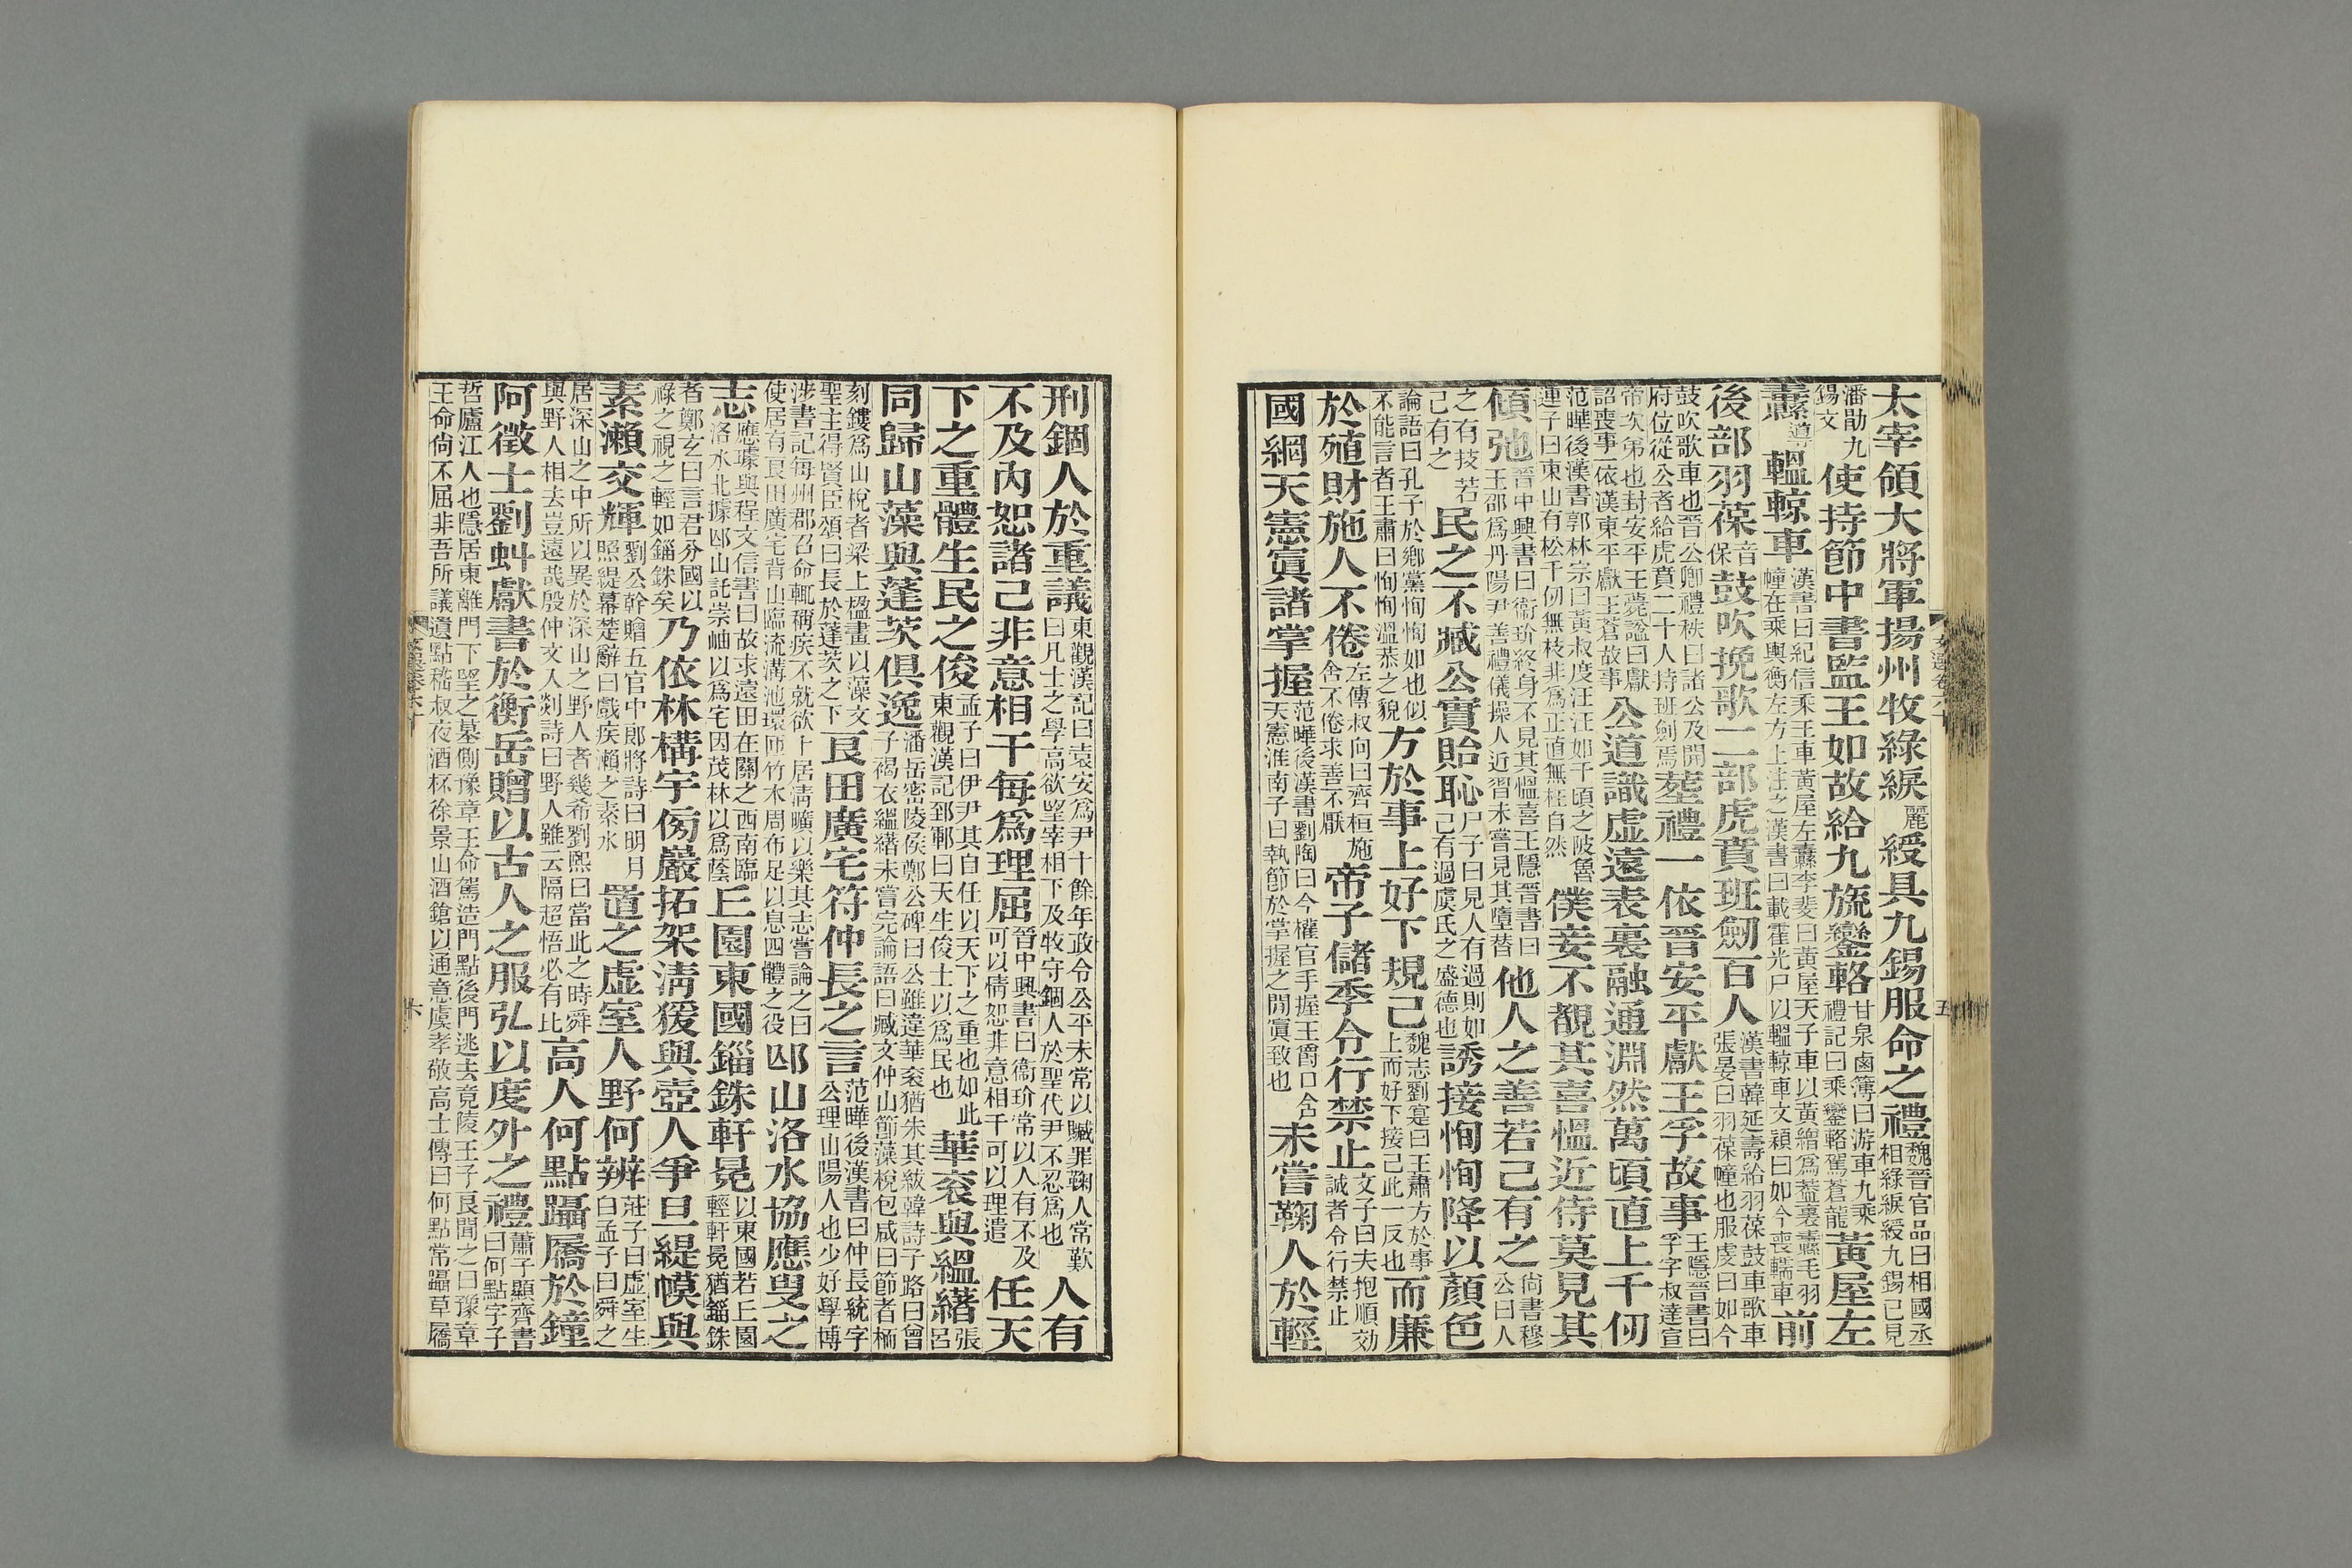 太宰領大將軍揚州牧綠綟麗綬具九錫服命之禮魏晉官品曰相國丞相綠綟綬九錫已見
潘勖九錫文使持節中書監王如故給九旒鑾輅甘泉鹵簿曰游車九乘禮記曰乘鑾輅駕蒼龍黃屋左
纛導轀輬車漢書曰紀信乘王車黃屋左纛李斐曰黃屋天子車以黃繒為蓋裏纛毛羽幢在乘輿衡左方上注之漢書曰載霍光尸以轀輬車文穎曰如今喪轜車前
後部羽葆音保鼓吹挽歌二部虎賁班劒百人漢書韓延壽給羽葆鼓車歌車張晏曰羽葆幢也服虔曰如今
鼓吹歌車也晉公卿禮秩曰諸公及開府位從公者給虎賁二十人持班劍焉葬禮一依晉安平獻王孚故事王隱晉書曰孚字叔達宣
帝次弟也封安平王薨謚曰獻詔喪事一依漢東平獻王蒼故事公道識虛遠表裏融通淵然萬頃直上千仞
范曄後漢書郭林宗曰黃叔度汪汪如千頃之陂魯連子曰東山有松千仞無枝非為正直無枉自然僕妾不覩其喜慍近侍莫見其
傾弛晉中興書曰衞玠終身不見其慍喜王隱晉書曰王邵為丹陽尹善禮儀操人近習未嘗見其墮替他人之善若己有之尚書穆公曰人
之有技若己有之民之不臧公實貽恥尸子曰見人有過則如己有過虞氏之盛德也誘接恂恂降以顏色
論語曰孔子於鄉黨恂恂如也似不能言者王肅曰恂恂溫恭之貌方於事上好下規己魏志劉寔曰王肅方於事上而好下接己此一反也而廉
於殖財施人不倦左傳叔向曰齊桓施舍不倦求善不厭帝子儲季令行禁止文子曰夫抱順効誠者令行禁止
國網天憲寘諸掌握范曄後漢書劉陶曰今權官手握王爵口含天憲淮南子曰執節於掌握之間寘致也未嘗鞠人於輕
文選卷六十
五
刑錮人於重議東觀漢記曰袁安為尹十餘年政令公平未常以贓罪鞠人常歎曰凡士之學高欲望宰相下及牧守錮人於聖代尹不忍為也人有
不及內恕諸己非意相干每為理屈晉中興書曰衞玠常以人有不及可以情恕非意相干可以理遣任天
下之重體生民之俊孟子曰伊尹其自任以天下之重也如此東觀漢記郅鄆曰天生俊士以為民也華衮與縕緒張呂
同歸山藻與蓬茨俱逸潘岳密陵侯鄭公碑曰公雖違華衮猶朱其紱韓詩子路曰曾子褐衣縕緒未嘗完論語曰臧文仲山節藻梲包咸曰節者栭
刻鏤為山梲者梁上楹畫以藻文聖主得賢臣頌曰長於蓬茨之下良田廣宅符仲長之言范曄後漢書曰仲長統字公理山陽人也少好學博
涉書記每州郡召命輒稱疾不就欲卜居清曠以樂其志嘗論之曰使居有良田廣宅背山臨流溝池環帀竹木周布足以息四體之役邙山洛水協應叟之
志應璩與程文信書曰故求遠田在關之西南臨洛水北據邙山託崇岫以為宅因茂林以為蔭丘園東國錙銖軒冕以東國若丘園輕軒冕猶錙銖
者鄭玄曰言君分國以祿之視之輕如錙銖矣乃依林構宇傍巖拓架清猨與壺人爭旦緹幙與
素瀨交輝劉公幹贈五官中郎將詩曰明月照緹幕楚辭曰戲疾瀨之素水置之虛室人野何辨莊子曰虛室生白孟子曰舜之
居深山之中所以異於深山之野人者幾希劉熙曰當此之時舜與野人相去豈遠哉殷仲文入剡詩曰野人雖云隔超悟必有比高人何點躡屩於鐘
阿徵士劉虯獻書於衡岳贈以古人之服弘以度外之禮蕭子顯齊書曰何點字子
晳廬江人也隱居東離門下望之墓側豫章王命駕造門點後門逃去竟陵王子良聞之曰豫章王命尚不屈非吾所議遺點嵇叔夜酒杯徐景山酒鎗以通意虞孝敬高士傳曰何點常躡草屩